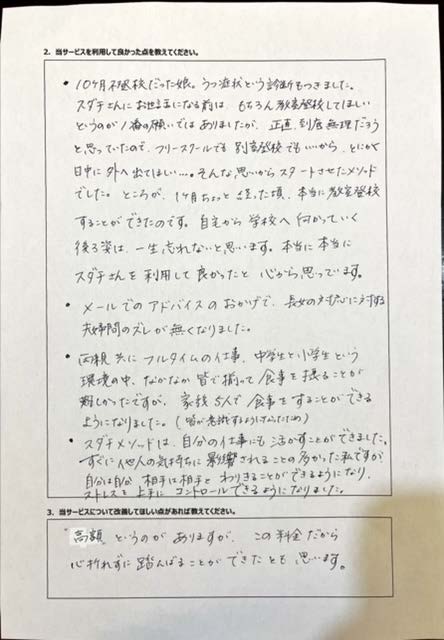 2. 当サービスを利用して良かった点を教えてください。
• 10ヶ月不登校だった娘。うつ症状という診断もつきました。
スダチさんにお世話になる前は、もちろん教室登校してほしい
というのが1番の願いではありましたが、正直、到底無理だろう
と思っていたので、フリースクールでも別室登校でもいいから、とにかく
日中に外へ出てほしい…。そんな思いからスタートさせたメソッド
でした。ところが、1ヶ月ちょっと経った頃、本当に教室登校
することができたのです。自宅から学校へ向かっていく
後ろ姿は、一生忘れないと思います。本当に本当に
スダチさんを利用して良かったと心から思っています。
• メールでのアドバイスのおかげで、長女の対応に対する
夫婦間のズレが無くなりました。
• 両親共にフルタイムの仕事、中学生と小学生という
環境の中、なかなか皆で揃って食事を摂ることが
難しかったですが、家族5人で食事をすることができる
ようになりました。(皆が意識するようになったため)
• スダチメソッドは、自分の仕事にも活かすことができました。
すぐに他人の気持ちに影響されることの多かった私ですが
自分は自分 相手は相手とわりきることができるようになり、
ストレスを上手にコントロールできるようになりました。
3. 当サービスについて改善してほしい点があれば教えてください。
"高額"というのがありますが、この料金だから
心折れずに踏んばることができたとも思います。